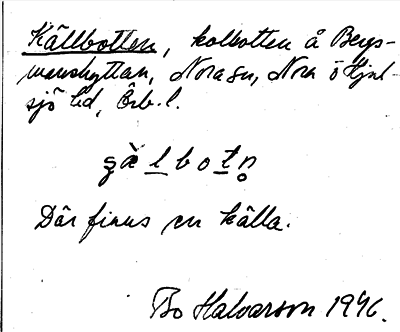 Källbotten, kolbotten å Bergs-
manshyttan, Nora sn, Nora o Hjul-
sjö bd, Örb. l.
ʂä̀l̲bot̲n̥
Där finns en källa.
Bo Halvarson 1946.